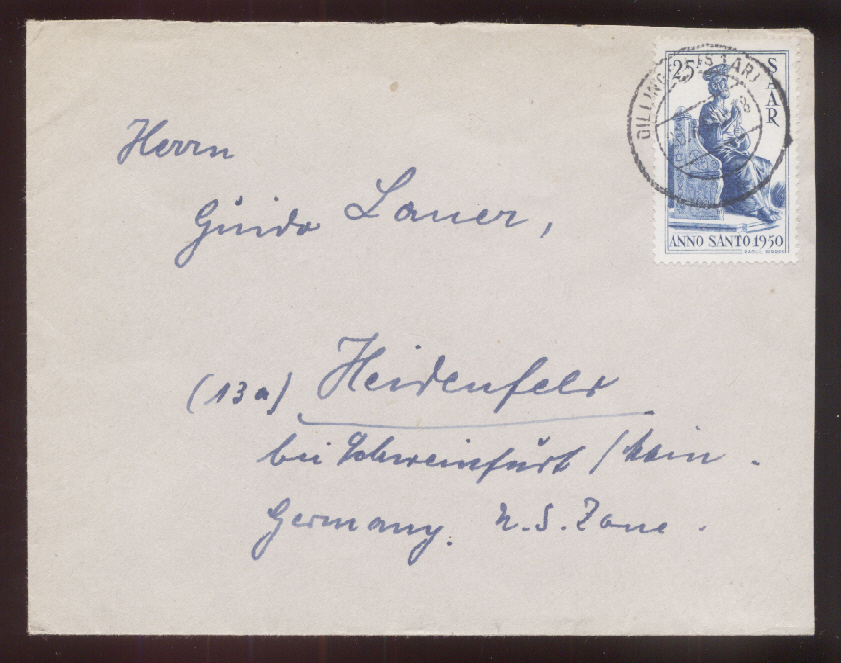 25 F
SAAR
DILLINGEN (SAAR)
ANNO SANTO 1950
Herrn
Guido Lauer,
(13a) Heidenfeld
bei Schweinfurt / Main.
Germany. U.S. Zone.